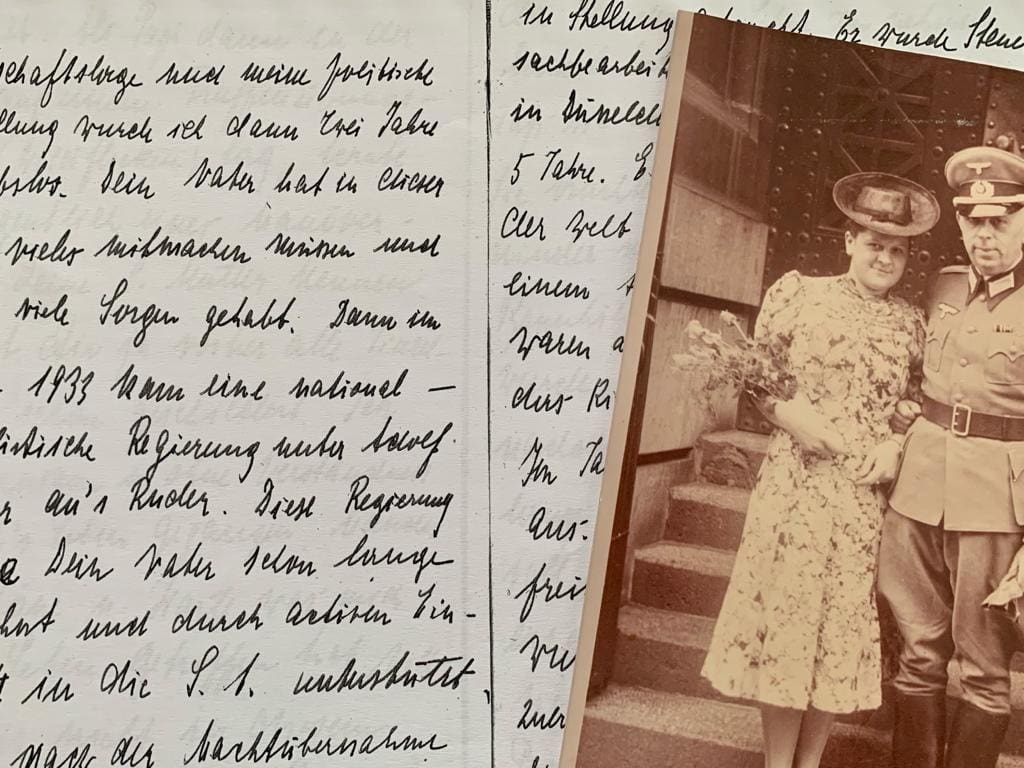 schaftslage und meine politische
llung wurde ich dann zwei Jahre
bslos. Dein Vater hat in dieser
vieles mitmachen müssen und
viele Sorgen gehabt. Dann im
1933 kam eine national –
listische Regierung unter Adolf
r an's Ruder. Diese Regierung
a Dein Vater schon lange
hnt und durch activen Ein-
t in die S. A. unterstützt
Nach der Machtübernahme
in Stellung gebracht. Er wurde Steue
sachbearbeit
in Düneld
5 Jahre. E
der Welt
einem
waren a
das Ri
Im Ja
aus.
frei
zuer